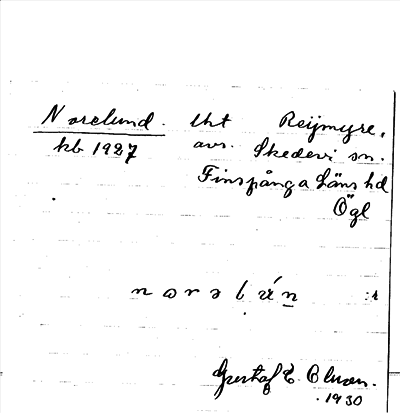 Norelund. Uht Reijmyre,
kb 1927 avs. Skedevi sn.
Finspånga Läns hd
Ögl
n ɷ r ə l ú n :r
Gustaf E. Olson.
1930